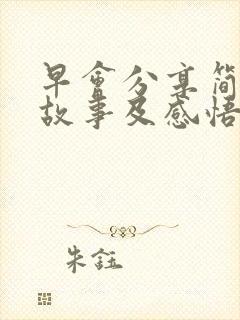 早会分享简
故事及感悟
朱钰